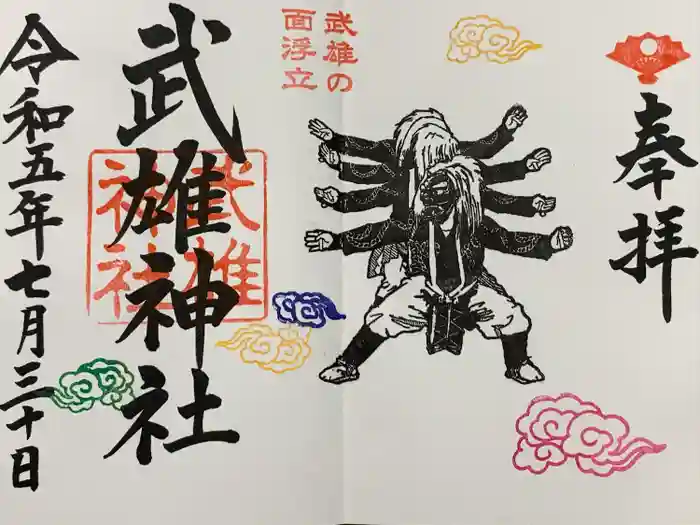 奉拝
武雄の
面浮立
武雄神社
武雄
神社
令和五年七月三十日